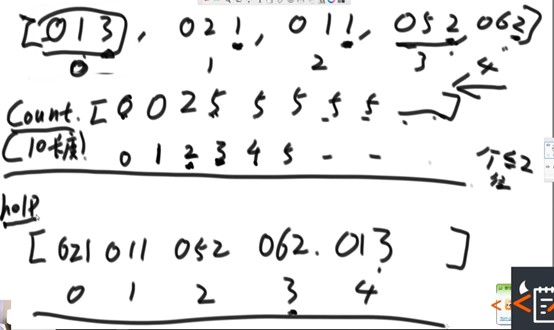 [013, 021, 011, 052, 062]
0 1 2 3 4
Count. [0 0 2 5 5 5 5 5 — ]
(10长度) 0 1 2 3 4 5 - -
个≤2
help
[021 011 052 062. 013 ]
0 1 2 3 4